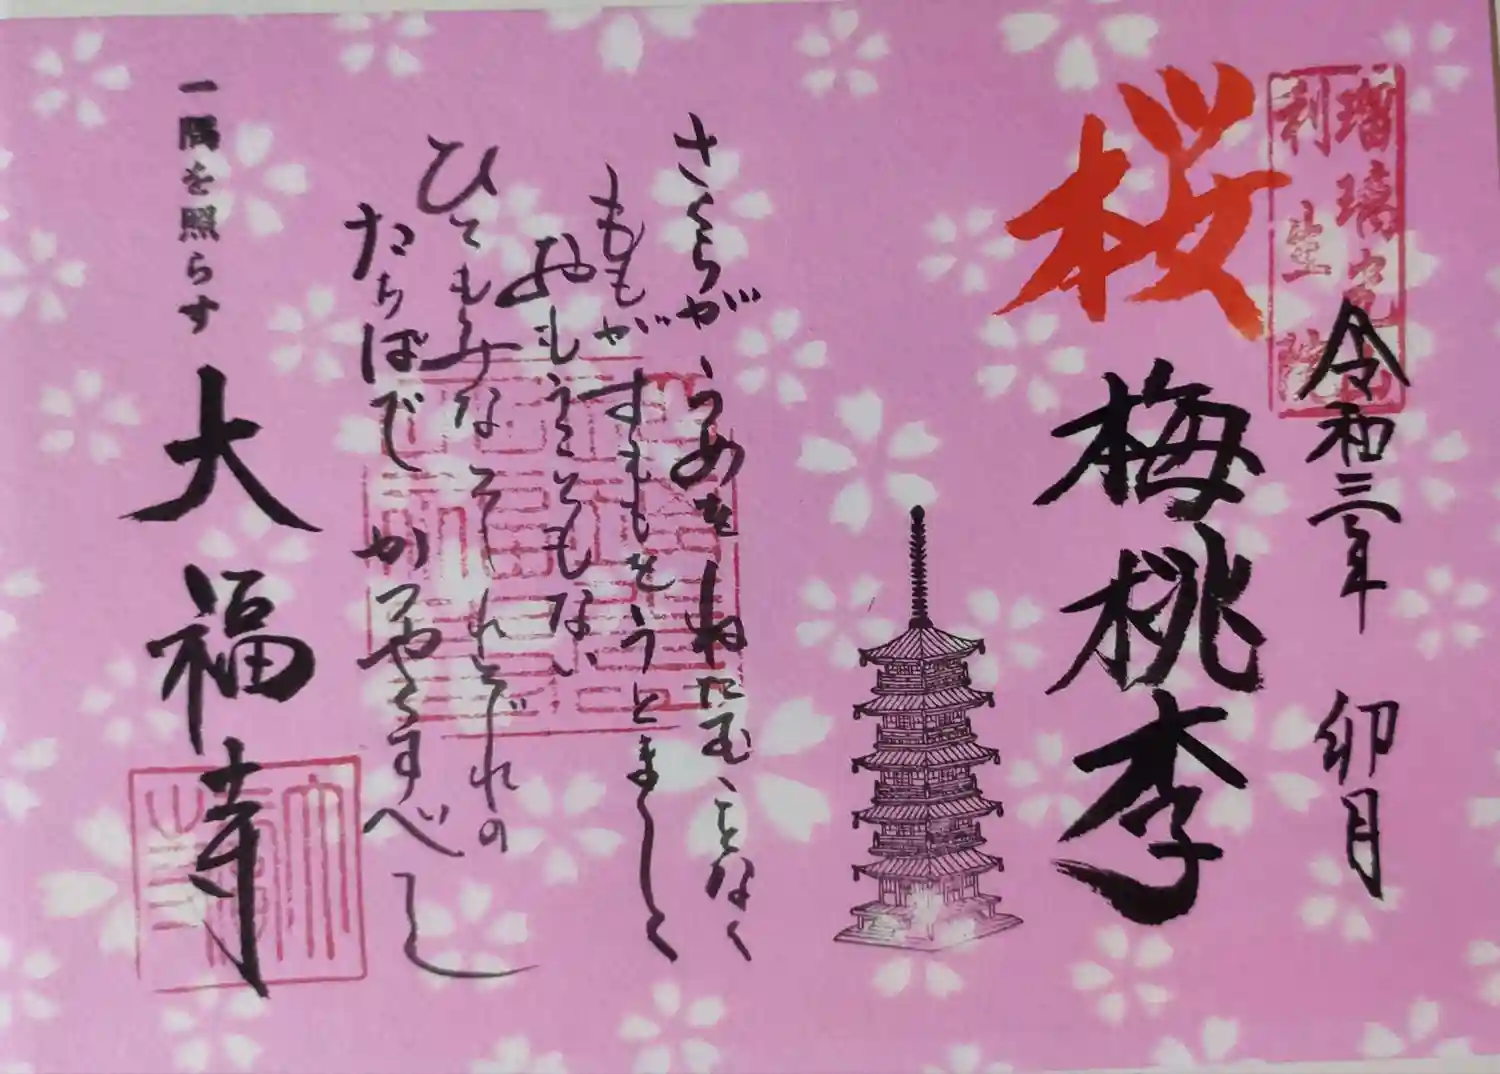 瑠璃光山
利生院
令和三年 卯月
桜梅桃李
さくらが うめを ねたむことなく
ももが すももをうとましく
おもうこともない
ひともみな それぞれの
たちばで かつやくすべし
一隅を照らす
大福寺